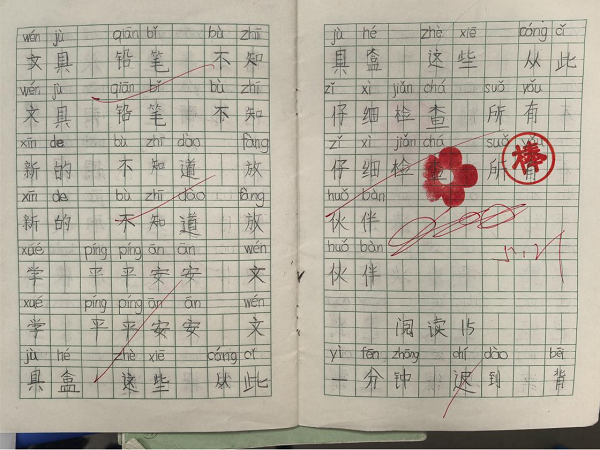 wén jù qiān bǐ bù zhī
文具 铅笔 不知
wén jù qiān bǐ bù zhī
文具 铅笔 不知
xīn de bù zhī dào fàng
新的 不知道 放
xīn de bù zhī dào fàng
新的 不知道 放
xué píng píng ān ān wén
学 平平安安 文
xué píng píng ān ān wén
学 平平安安 文
jù hé zhè xiē cóng cǐ
具盒 这些 从此
jù hé zhè xiē cóng cǐ
具盒 这些 从此
zǐ xì jiǎn chá suǒ yǒu
仔细检查 所有
zǐ xì jiǎn chá suǒ yǒu
仔细检查 所有
棒
huǒ bàn
伙伴
huǒ bàn
伙伴
5.21
阅读15
yì fēn zhōng chí dào bēi
一分钟 迟到 背